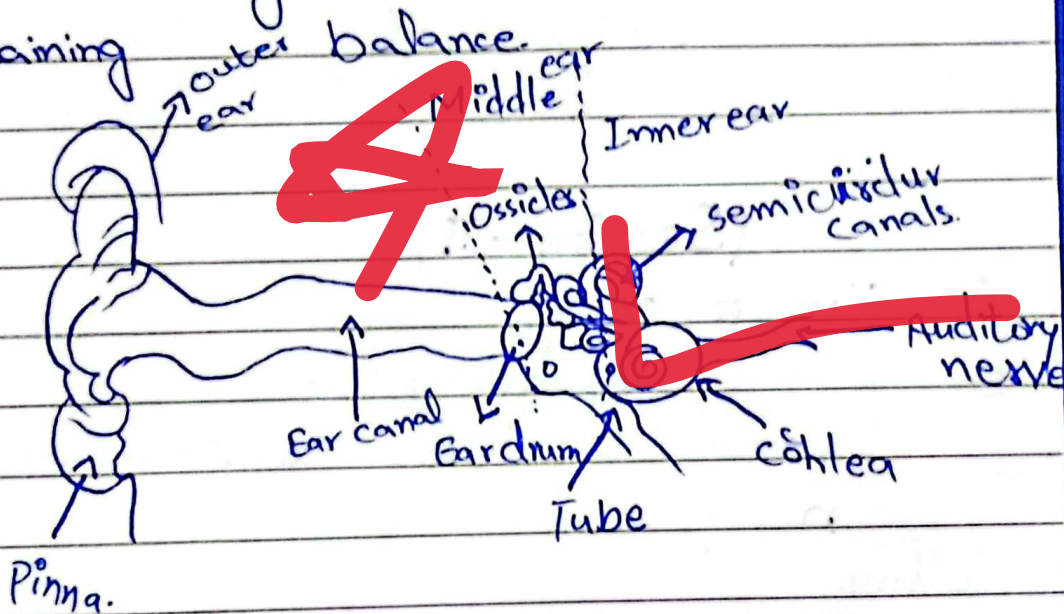 aining balance.
outer
ear
4
Middle ear
Inner ear
Ossicles
semicirclur
canals.
Auditory
nerve
Ear canal
Eardrum
Cohlea
Tube
Pinna.